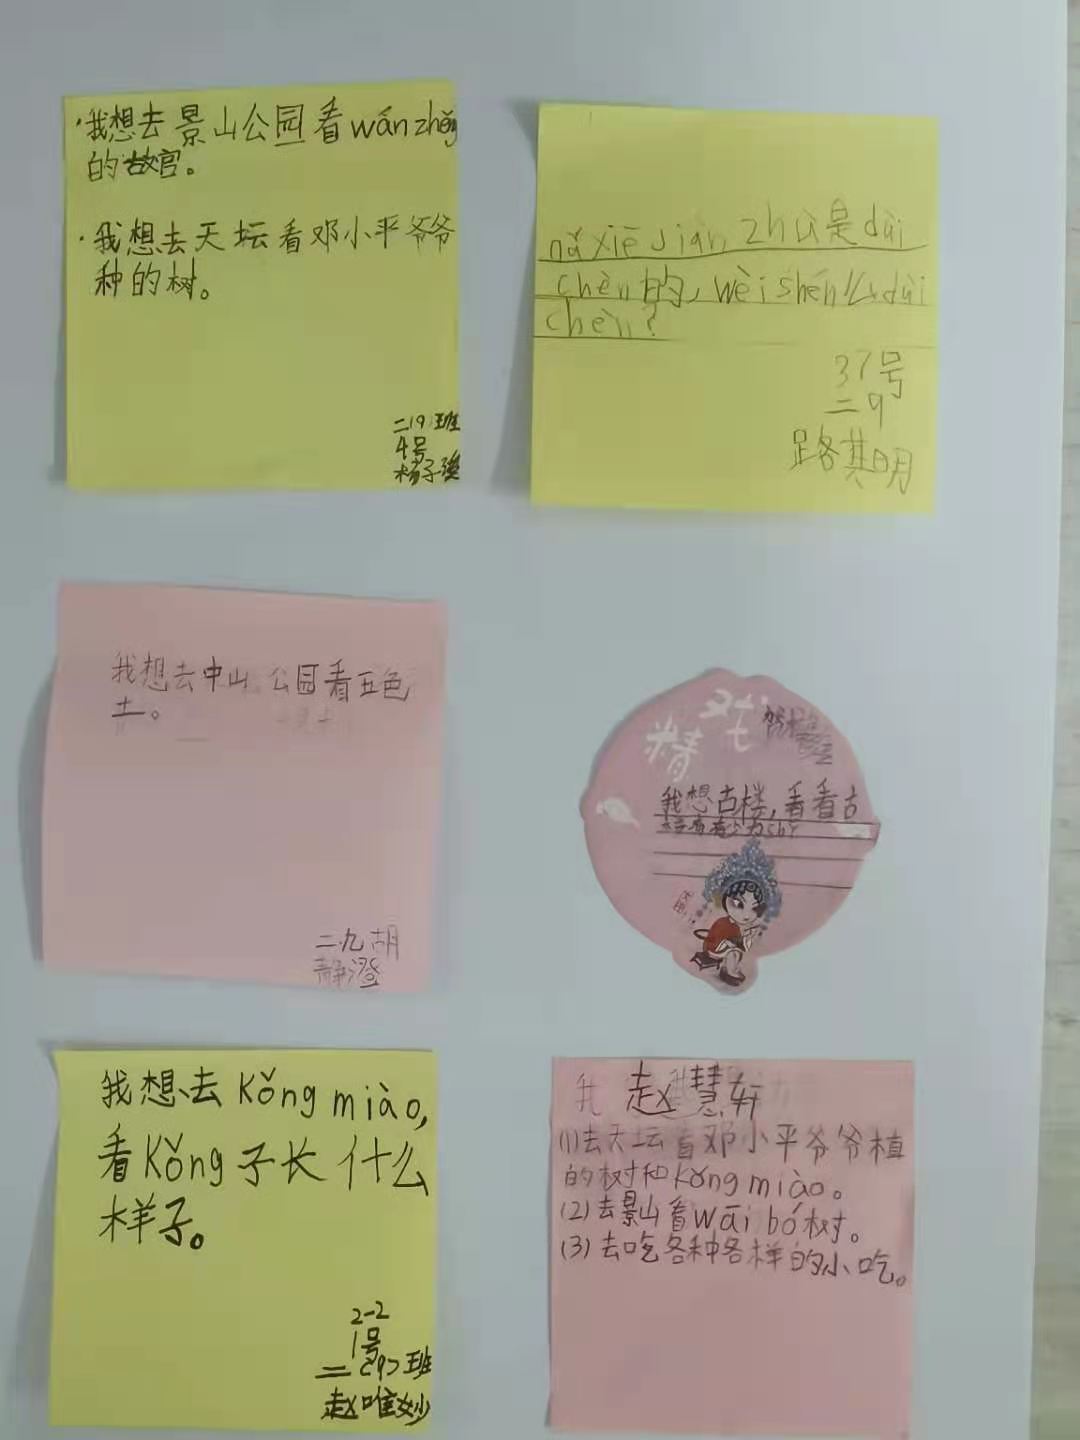 ·我想去景山公园看wánzhěng
的故宫。
·我想去天坛看邓小平爷爷
种的树。
二(9)班
4号
杨子
nǎ xiē jiàn zhù是duì
chèn的,wèi shén么duì
chèn?
37号
二9
路其明
我想去中山公园看五色
土。
二九胡
静澄
精
戏
我想古楼,看看古
我想去kǒng miào,
看kǒng子长什么
样子。
2-2
1号
二(9)班
赵唯妙
我 赵慧轩
(1)去天坛看邓小平爷爷植
的树和kǒng miào。
(2)去景山看wāi bó树。
(3)去吃各种各样的小吃。